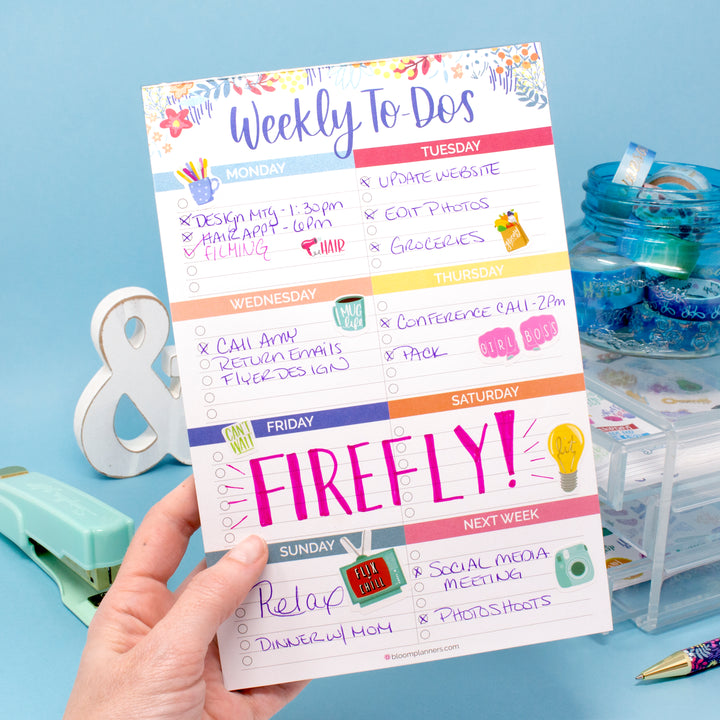 Weekly To-Dos
MONDAY
DESIGN MTG - 1:30pm
HAIR APPT - 6pm
FILMING
HAIR
TUESDAY
UPDATE WEBSITE
EDIT PHOTOS
GROCERIES
WEDNESDAY
I MUG
life
CALL AMY
RETURN EMAILS
FLYER DESIGN
THURSDAY
CONFERENCE CALL - 2pm
PACK
GIRL BOSS
FRIDAY
CAN'T
WAIT
SATURDAY
FIREFLY!
lit
SUNDAY
FLIX
&
CHILL
Relax
DINNER W/ MOM
NEXT WEEK
SOCIAL MEDIA
MEETING
PHOTOSHOOTS
bloomplanners.com
&